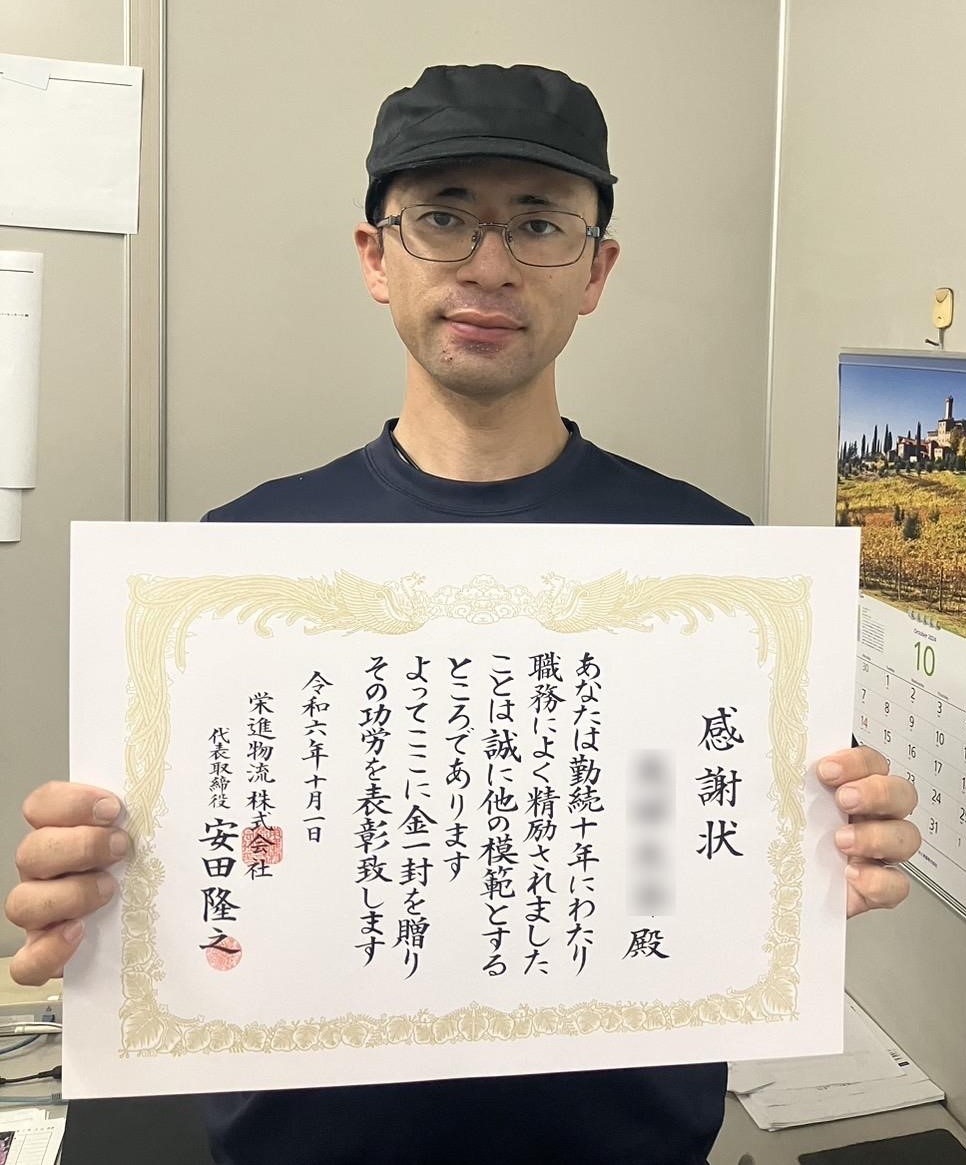 感謝状
殿
あなたは勤続十年にわたり
職務によく精励されました
ことは誠に他の模範とする
ところであります
よってここに金一封を贈り
その功労を表彰致します
令和六年十月一日
栄進物流株式会社
代表取締役 安田隆之
October 2024
10
30 1 2 3
7 8 9 10
14 15 16 17
23 24
31 1